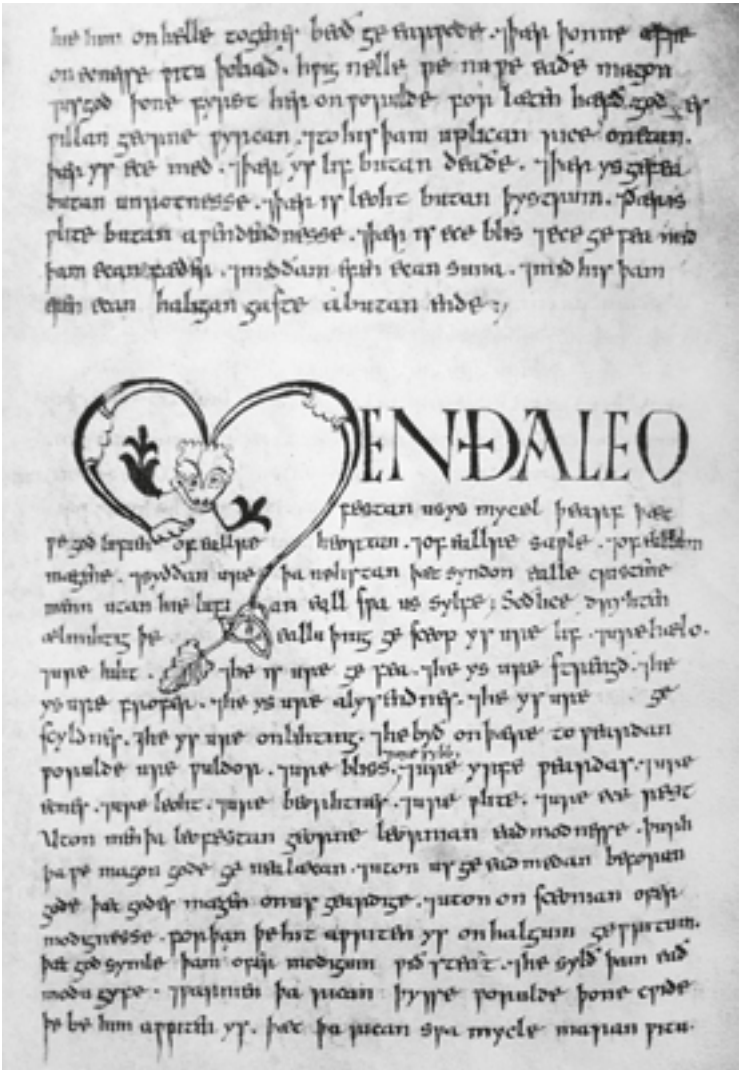 hie him on helle beoð ⁊þær þonne æfre
on ƿitu þoliað. hƿig nelle ƿe nu ƿe eaðe magon
þone fyrst her on ƿorulde for god
ƿillan georne ƿyrcan. ⁊to his þam uplican rice onettan.
þær ys ece med. ⁊þær ys lif butan deaðe. ⁊þær ys gefea
butan unrotnesse. ⁊þær is leoht butan þystrum. Þær is
ƿlite butan aƿendednesse. ⁊þær is ece blis ⁊ece gefea mid
þam ecan fæder. ⁊mid ðam efen ecan suna. ⁊mid his þam
efen ecan haligan gaste á butan ende:,
MENÐALEO
festan us ys mycel þearf þæt
ƿe god lufien of eallre heortan. ⁊of eallre saƿle. ⁊of
mægne. ⁊syððan ure þa nehstan þæt syndon ealle cristene
menn utan hie an eall sƿa us sylfe; Soðlice dryhten
ælmihtig þe eallu þing gesceop ys ure lif. ⁊ure hælo.
⁊ure hiht. ⁊he is ure gefea. ⁊he ys ure strengð. ⁊he
ys ure frofer. ⁊he ys ure alysednes. ⁊he ys ure ge
scyldnes. ⁊he ys ure onlihting. ⁊he byð on þære toƿeardan
ƿorulde ure ƿuldor. ⁊ure bliss. ⁊ure yrfe ƿeardas. ⁊ure
ecnes. ⁊ure leoht. ⁊ure beorhtnes. ⁊ure ƿlite. ⁊ure ece rest
Uton men þa leofestan georne leornian eaðmodnesse. þurh
þa ƿe magon gode ge nealæcan. ⁊uton us ge eaðmedan beforan
gode þæt godes mægen on us geeardige. ⁊uton on scunian ofer
modignesse. forþan þe hit aƿriten ys on halgum geƿritum.
þæt god symle þam ofer modigum ƿið ⁊he sylð þam eað
modu gyfe. þa rican þysse ƿorulde þone cƿide
þe be him aƿriten ys. þæt þa rican sƿa mycle maran ƿitu.